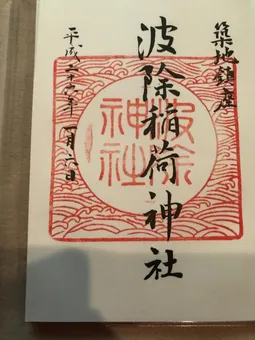 築地鎮座
波除稲荷神社
波除
神社
平成 年 月 日